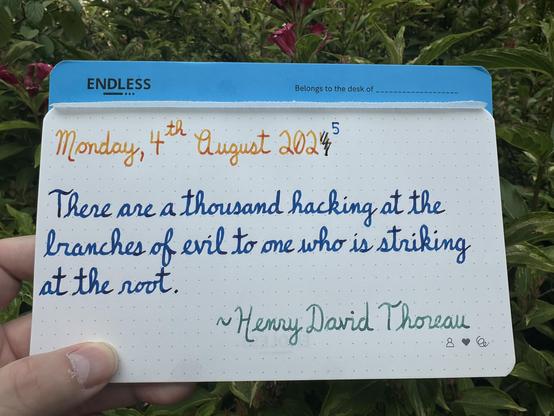 ENDLESS
Belongs to the desk of
Monday, 4th August 2025
There are a thousand hacking at the
branches of evil to one who is striking
at the root.
~Henry David Thoreau